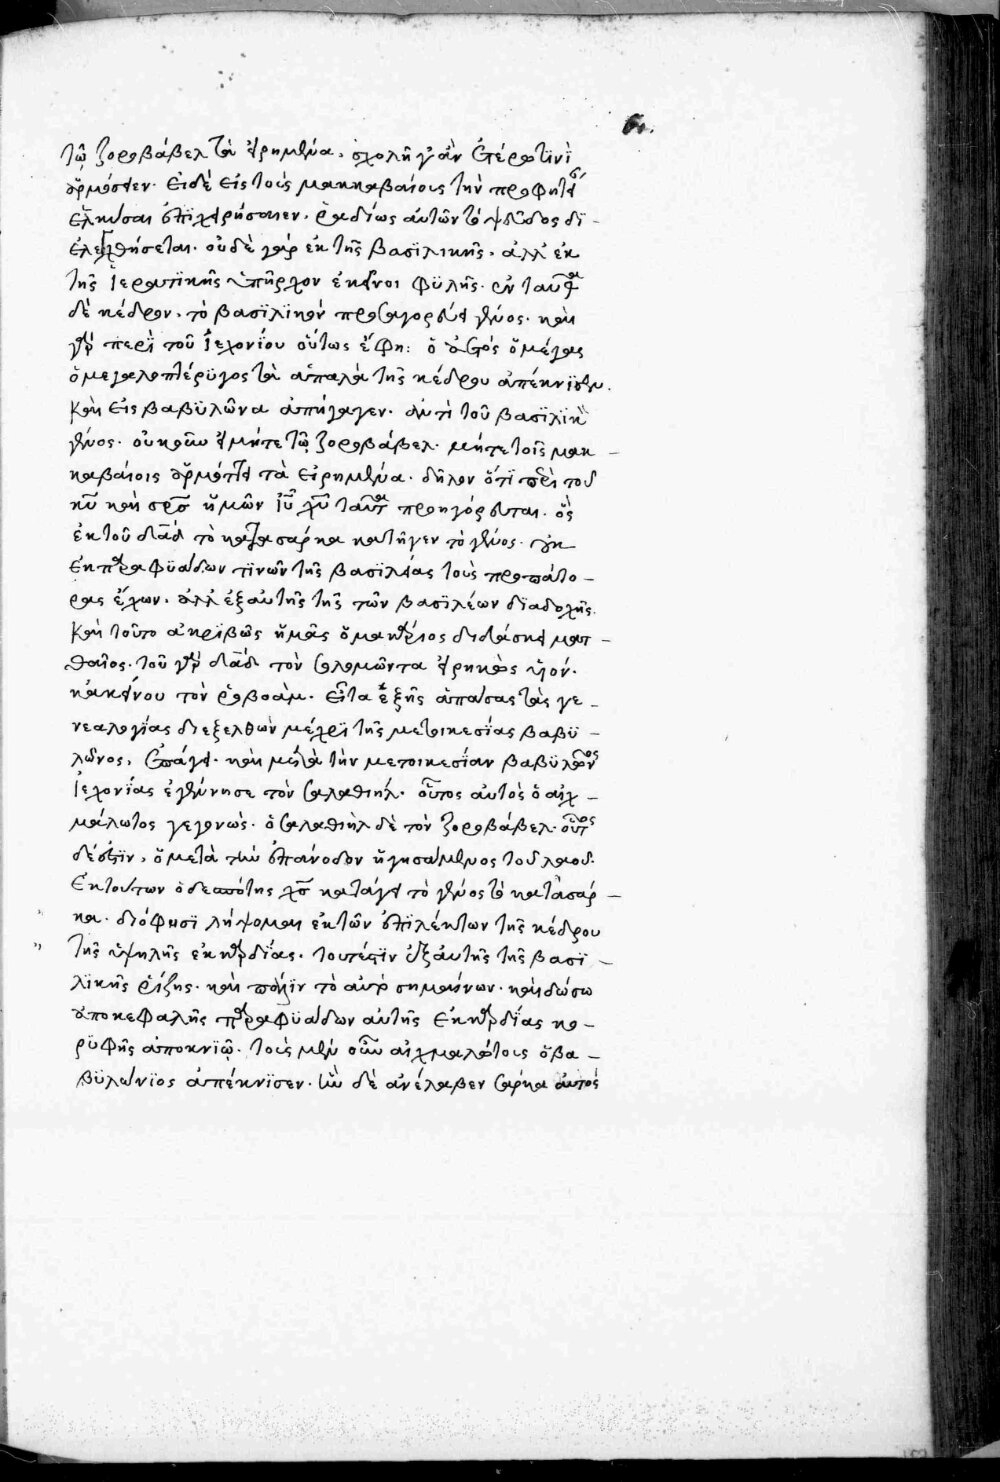 τῷ ζοροβάβελ τὰ εἰρημένα, σχολῆ γ' ἂν ἑτέρω τινὶ
ἁρμόσειεν. εἰ δὲ εἰς τοὺς μακκαβαίους τὴν προφητείαν
ἑλκύσαι ἐπιχειρήσαιεν, ῥαδίως αὐτῶν τὸ ψεῦδος δι –
ελεγχθήσεται. οὐδὲ γὰρ ἐκ τῆς βασιλικῆς, ἀλλ' ἐκ
τῆς ἱερατικῆς ὑπῆρχον ἐκεῖνοι φυλῆς. ἐνταῦθα
δὲ κέδρον, τὸ βασιλικὸν προσαγορεύει γένος. καὶ
γὰρ περὶ τοῦ ἰεχονίου οὕτως ἔφη: ὁ ἀετὸς ὁ μέγας
ὁ μεγαλοπτέρυγος τὰ ἁπαλὰ τῆς κέδρου ἀπέκνισεν.
καὶ εἰς βαβυλῶνα ἀπήγαγεν. ἀντὶ τοῦ βασιλικὸν
γένος. οὐκοῦν εἰ μήτε τῷ ζοροβάβελ. μήτε τοῖς μακ –
καβαίοις ἁρμόττει τὰ εἰρημένα. δῆλον ὅτι περὶ τοῦ
κυ καὶ σρς ἡμῶν ιυ χυ ταῦτα προηγόρευται. ὃς
ἐκ τοῦ δαδ τὸ κατὰ σάρκα κατῆγεν τὸ γένος. οὐκ
ἐκ παραφυάδων τινῶν τῆς βασιλείας τοὺς προπάτο –
ρας ἔχων. ἀλλ' ἐξ αὐτῆς τῆς τῶν βασιλέων διαδοχῆς.
καὶ τοῦτο ἀκριβῶς ἡμᾶς ὁ μακάριος διδάσκει ματ –
θαῖος. τοῦ γὰρ δαδ τὸν σαλομῶντα εἰρηκὼς υἱόν.
κἀκείνου τὸν ῥοβοάμ. εἶτα ἑξῆς ἁπάσας τὰς γε –
νεαλογίας διεξελθὼν μέχρι τῆς μετοικεσίας βαβυ –
λῶνος, ἐπάγει. καὶ μετὰ τὴν μετοικεσίαν βαβυλῶνος
ἰεχονίας ἐγέννησε τὸν σαλαθιήλ. οὗτος αὐτὸς ὁ αἰχ –
μάλωτος γεγονώς. ὁ σαλαθιὴλ δὲ τὸν ζοροβάβελ. οὗτος
δέ ἐστιν, ὁ μετὰ τὴν ἐπάνοδον ἡγησάμενος τοῦ λαοῦ.
ἐκ τούτων ὁ δεσπότης χς κατάγει τὸ γένος τὸ κατὰ σάρ –
κα. διό φησι λήψομαι ἐκ τῶν ἐπιλέκτων τῆς κέδρου
τῆς ὑψηλῆς ἐκ καρδίας. τουτέστιν ἐξ αὐτῆς τῆς βασι –
λικῆς ῥίζης. καὶ πάλιν τὸ αὐτὸ σημαίνων. καὶ δώσω
ἀπὸ κεφαλῆς παραφυάδων αὐτῆς ἐκ καρδίας κο –
ρυφῆς ἀποκνιῶ. τοὺς μὲν οὖν αἰχμαλώτους ὁ βα –
βυλώνιος ἀπέκνισεν. ἣν δὲ ἀνέλαβεν σάρκα αὐτὸς